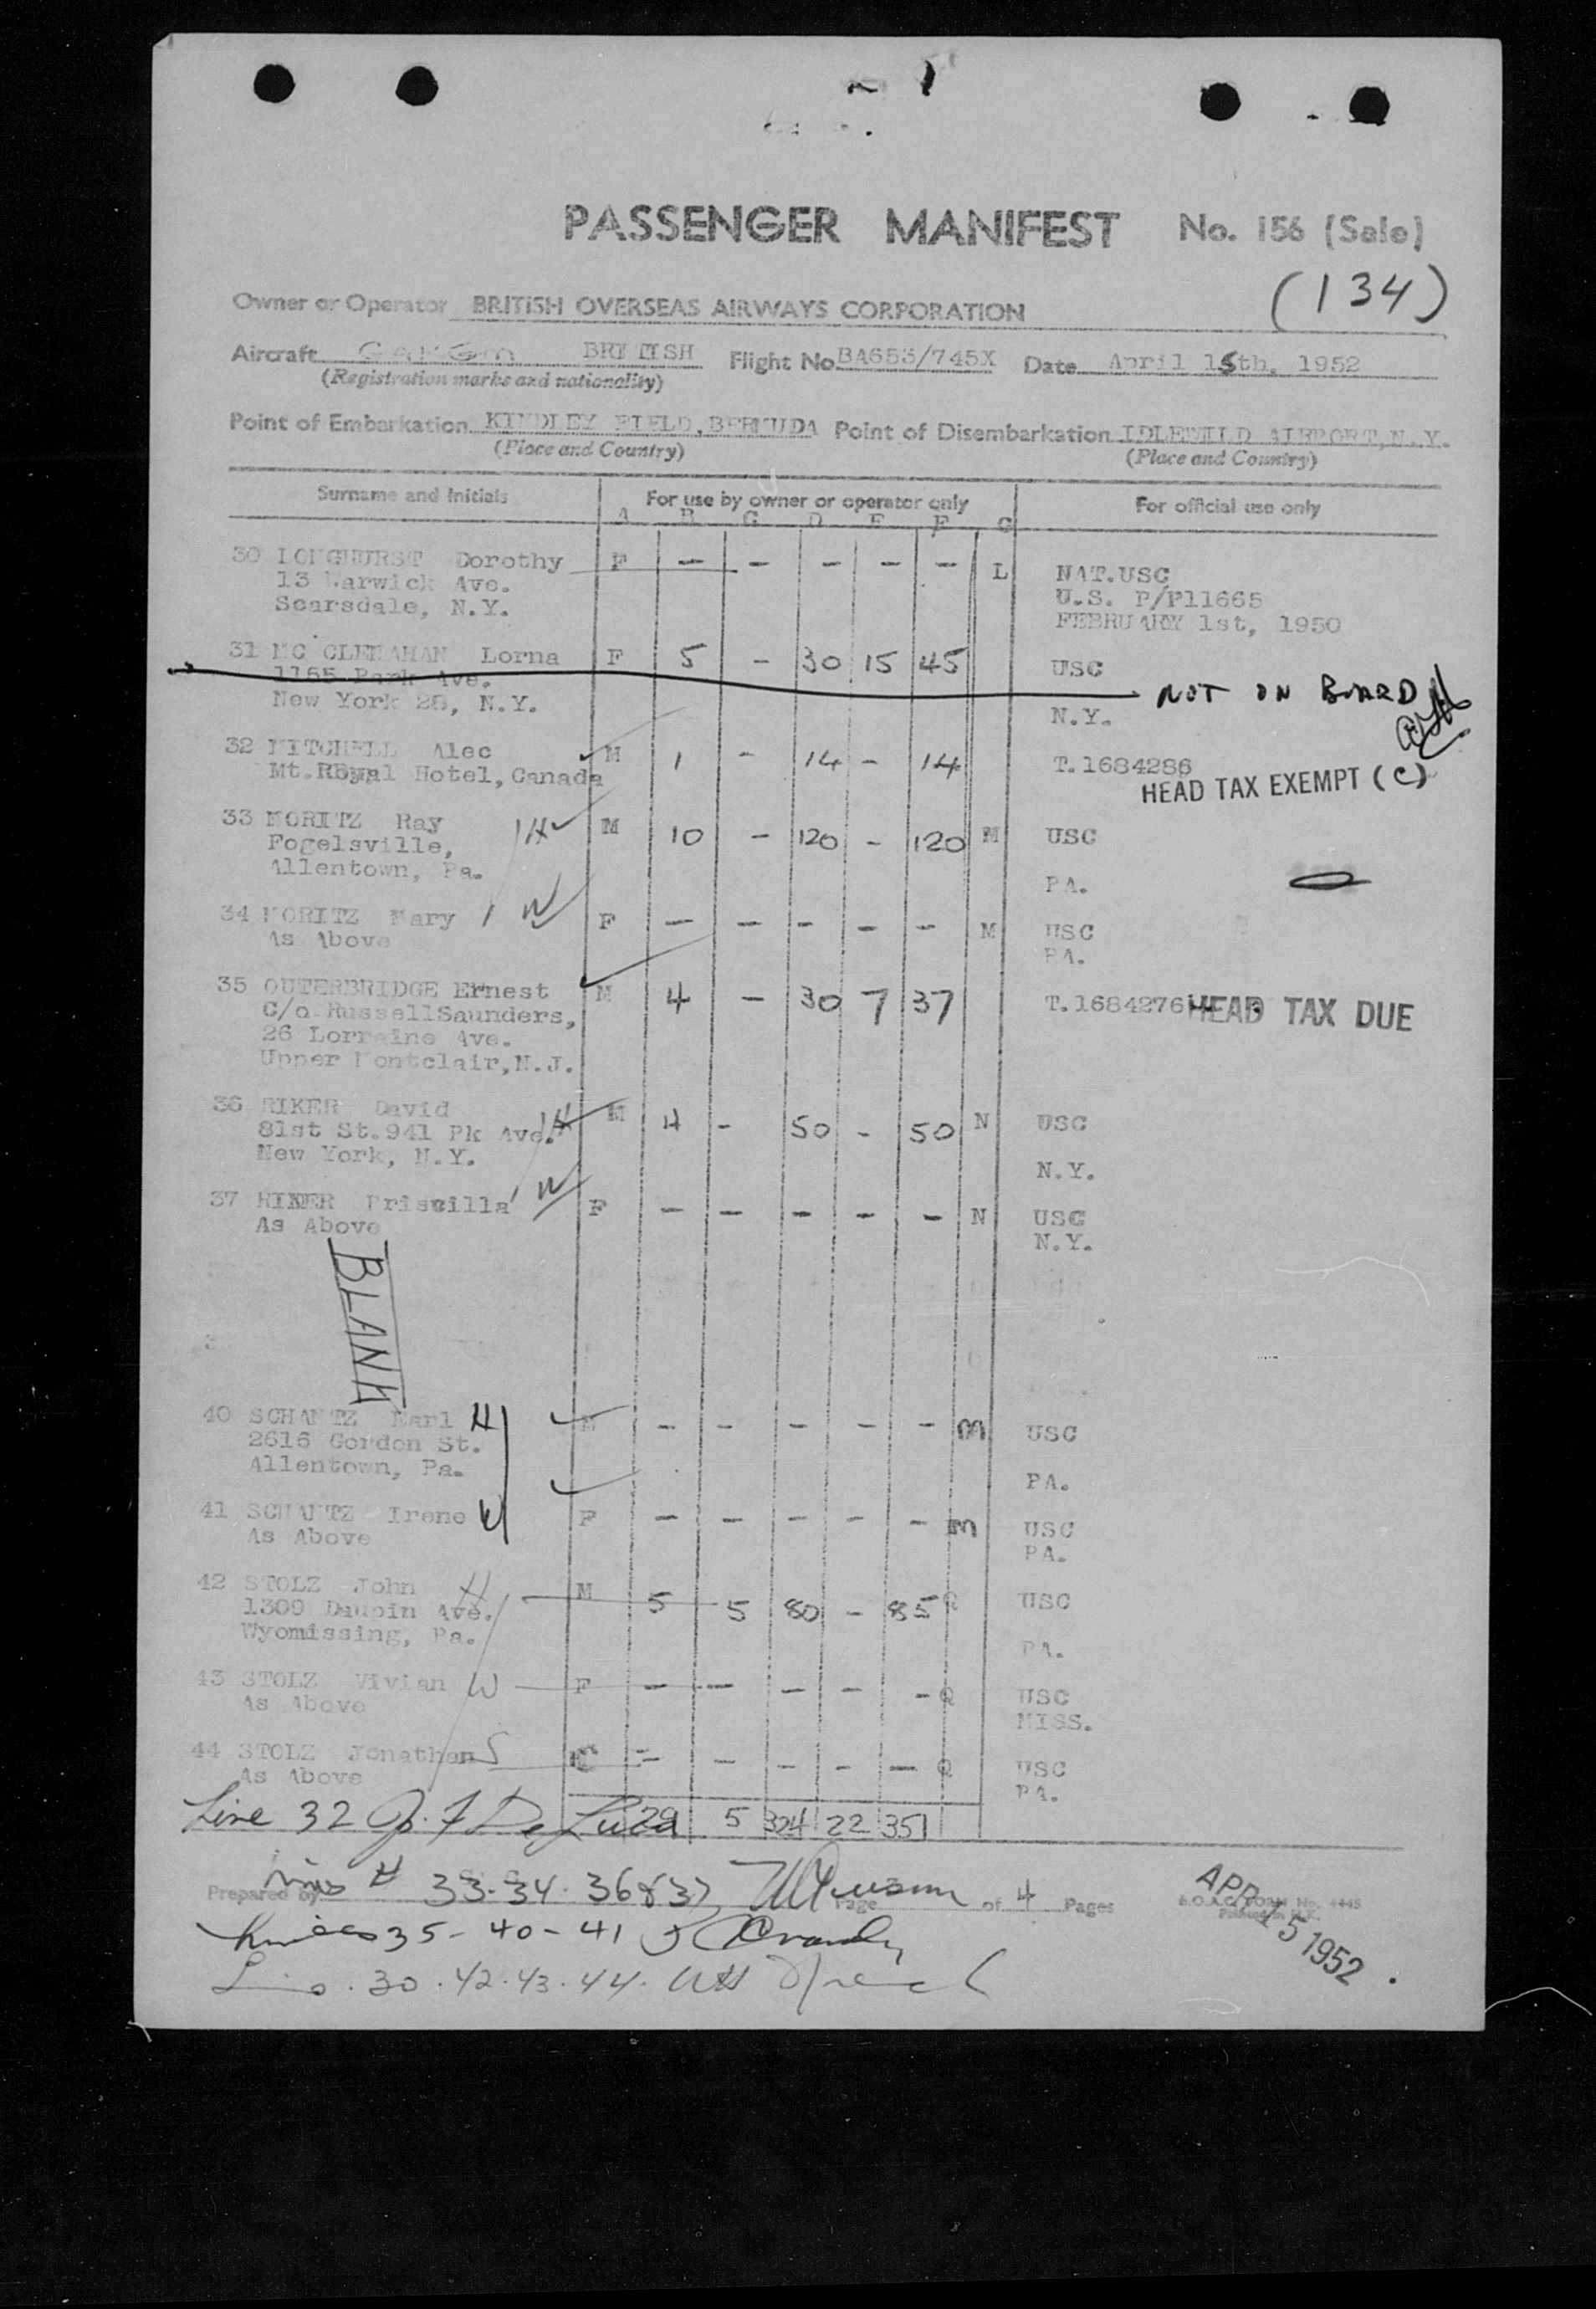 PASSENGER MANIFEST No. 156 (Sale)
(134)
Owner or Operator BRITISH OVERSEAS AIRWAYS CORPORATION
Aircraft BRITISH Flight No. BA653/745X Date April 15th, 1952
(Registration marks and nationality)
Point of Embarkation KINDLEY FIELD, BERMUDA Point of Disembarkation IDLEWILD AIRPORT, N.Y.
(Place and Country) (Place and Country)
Surname and Initials For use by owner or operator only For official use only
A B C D E F G
30 LONGHURST Dorothy F - - - - - L NAT.USC
13 Warwick Ave. U.S. P/P11665
Scarsdale, N.Y. FEBRUARY 1st, 1950
31 MC CLENAHAN Lorna F 5 - 30 15 45 USC
1165 Park Ave. NOT ON BOARD
New York 28, N.Y. N.Y.
32 MITCHELL Alec M 1 - 14 - 14 T.1684286
Mt. Royal Hotel, Canada HEAD TAX EXEMPT (C)
33 MORITZ Ray H M 10 - 120 - 120 M USC
Fogelsville,
Allentown, Pa. PA.
34 MORITZ Mary W F - - - - - M USC
As Above PA.
35 OUTERBRIDGE Ernest M 4 - 30 7 37 T.1684276 HEAD TAX DUE
C/o Russell Saunders,
26 Lorraine Ave.
Upper Montclair, N.J.
36 RIKER David H M 4 - 50 - 50 N USC
81st St. 941 Pk Ave.
New York, N.Y. N.Y.
37 RIKER Priscilla W F - - - - - N USC
As Above N.Y.
BLANK
40 SCHANTZ Earl H M - - - - - M USC
2616 Gordon St.
Allentown, Pa. PA.
41 SCHANTZ Irene W F - - - - - M USC
As Above PA.
42 STOLZ John H M 5 5 80 - 85 Q USC
1309 Daupin Ave.
Wyomissing, Pa. PA.
43 STOLZ Vivian W F - - - - - Q USC
As Above MISS.
44 STOLZ Jonathan S C - - - - - Q USC
As Above PA.
Line 32 29 5 324 22 351
Prepared by # 33-34-36&37 Page of 4 Pages B.O.A.C. FORM No. 4445
APR 15 1952
Lines 35-40-41
30.42.43.44.